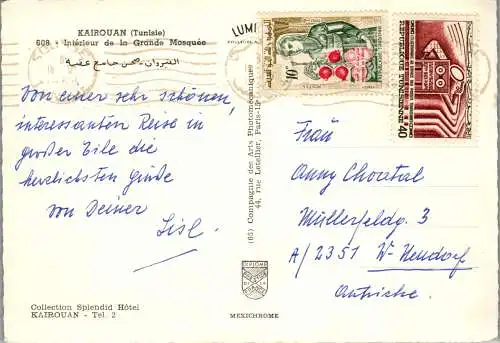 KAIROUAN (Tunisie)
608 - Intérieur de la Grande Mosquée
القيروان - صحن جامع عقبة
LUMI
Von einer sehr schönen,
interessanten Reise in
großer Eile die
herzlichsten Grüße
von Deiner
Lisl.
Collection Splendid Hôtel
KAIROUAN - Tel. 2
(65) Compagnie des Arts Photomécaniques
44, rue Letellier, Paris-15e
DIPLOME
MEXICHROME
10
REPUBLIQUE TUNISIENNE
40
Frau
Anny Choratal
Müllerfeldg. 3
A/2351 W-Neudorf
Autriche